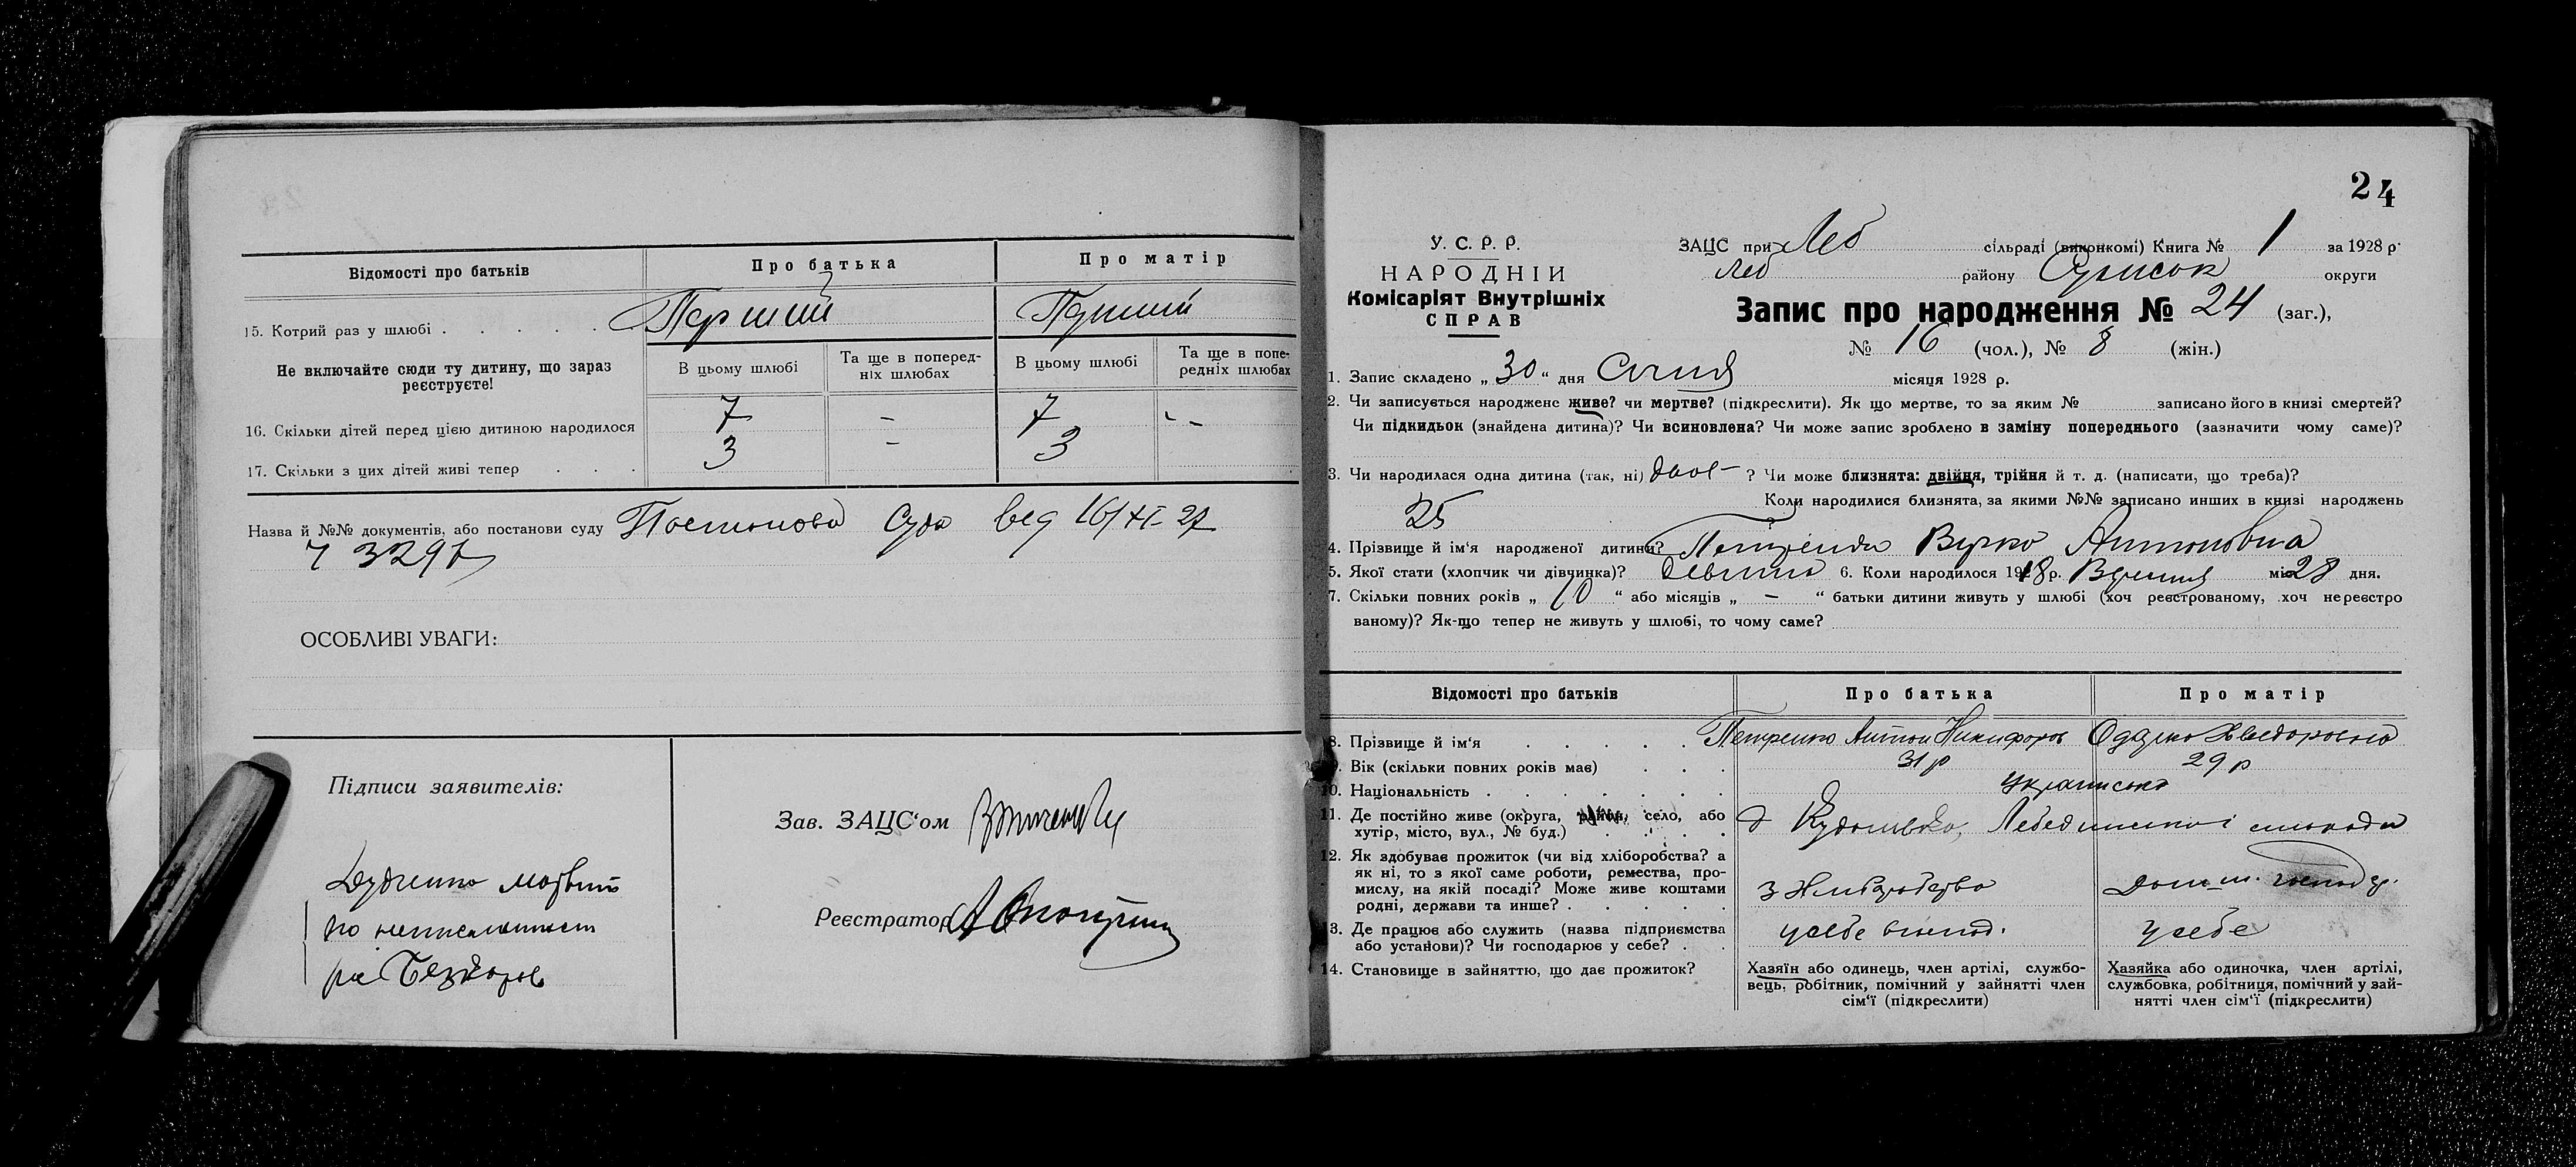 Відомості про батьків
Про батька
Про матір
15. Котрий раз у шлюбі . . . . .
Перший
Перший
Не включайте сюди ту дитину, що зараз
реєструєте!
В цьому шлюбі
Та ще в поперед-
ніх шлюбах
В цьому шлюбі
Та ще в попе-
редніх шлюбах
16. Скільки дітей перед цією дитиною народилося
7 - 7 - -
17. Скільки з цих дітей живі тепер . . .
3 - 3
Назва й №№ документів, або постанови суду Постонова Суда вед 16/XI-27
Ч 3297
ОСОБЛИВІ УВАГИ:
Підписи заявителів:
по неписьмінност
Зав. ЗАЦС'ом
Реєстратор
24
У. С. Р. Р.
НАРОДНІЙ
Комісаріят Внутрішніх
СПРАВ
ЗАЦС при Леб сільраді (виконкомі) Книга № 1 за 1928 р.
Леб району Сумской округи
Запис про народження № 24 (заг.),
№ 16 (чол.), № 8 (жін.)
1. Запис складено „ 30 “ дня Січня місяця 1928 р.
2. Чи записується народжене живе? чи мертве? (підкреслити). Як що мертве, то за яким № записано його в книзі смертей?
Чи підкидьок (знайдена дитина)? Чи всиновлена? Чи може запис зроблено в заміну попереднього (зазначити чому саме)?
3. Чи народилася одна дитина (так, ні) двоє – ? Чи може близнята: двійня, трійня й т. д. (написати, що треба)?
25 Коли народилися близнята, за якими №№ записано инших в книзі народжень
?
4. Прізвище й ім'я народженої дитини? Петренко Вірко Антоновна
5. Якої стати (хлопчик чи дівчинка)? 6. Коли народилося 1918 р. Вересня міс 28 дня.
7. Скільки повних років „ 10 “ або місяців „ – “ батьки дитини живуть у шлюбі (хоч реєстрованому, хоч нереєстро
ваному)? Як-що тепер не живуть у шлюбі, то чому саме?
Відомості про батьків
Про батька
Про матір
8. Прізвище й ім'я . . . . .
Петренко Антон Никифоров
Оддрко Хведоровно
9. Вік (скільки повних років має) . . .
31 р
29 р
10. Національність . . . . . . .
Українсько
11. Де постійно живе (округа, район, село, або
хутір, місто, вул., № буд.) . . . .
Лебединської сільради
12. Як здобуває прожиток (чи від хліборобства? а
як ні, то з якої саме роботи, ремества, про-
мислу, на якій посаді? Може живе коштами
родні, держави та инше? . . . . .
з Хліборобство
Домаш. господ.
13. Де працює або служить (назва підприємства
або установи)? Чи господарює у себе? . .
у себе в господ.
у себе
14. Становище в зайняттю, що дає прожиток?
Хазяїн або одинець, член артілі, службо-
вець, робітник, помічний у зайнятті член
сім'ї (підкреслити)
Хазяйка або одиночка, член артілі,
службовка, робітниця, помічний у зай-
нятті член сім'ї (підкреслити)